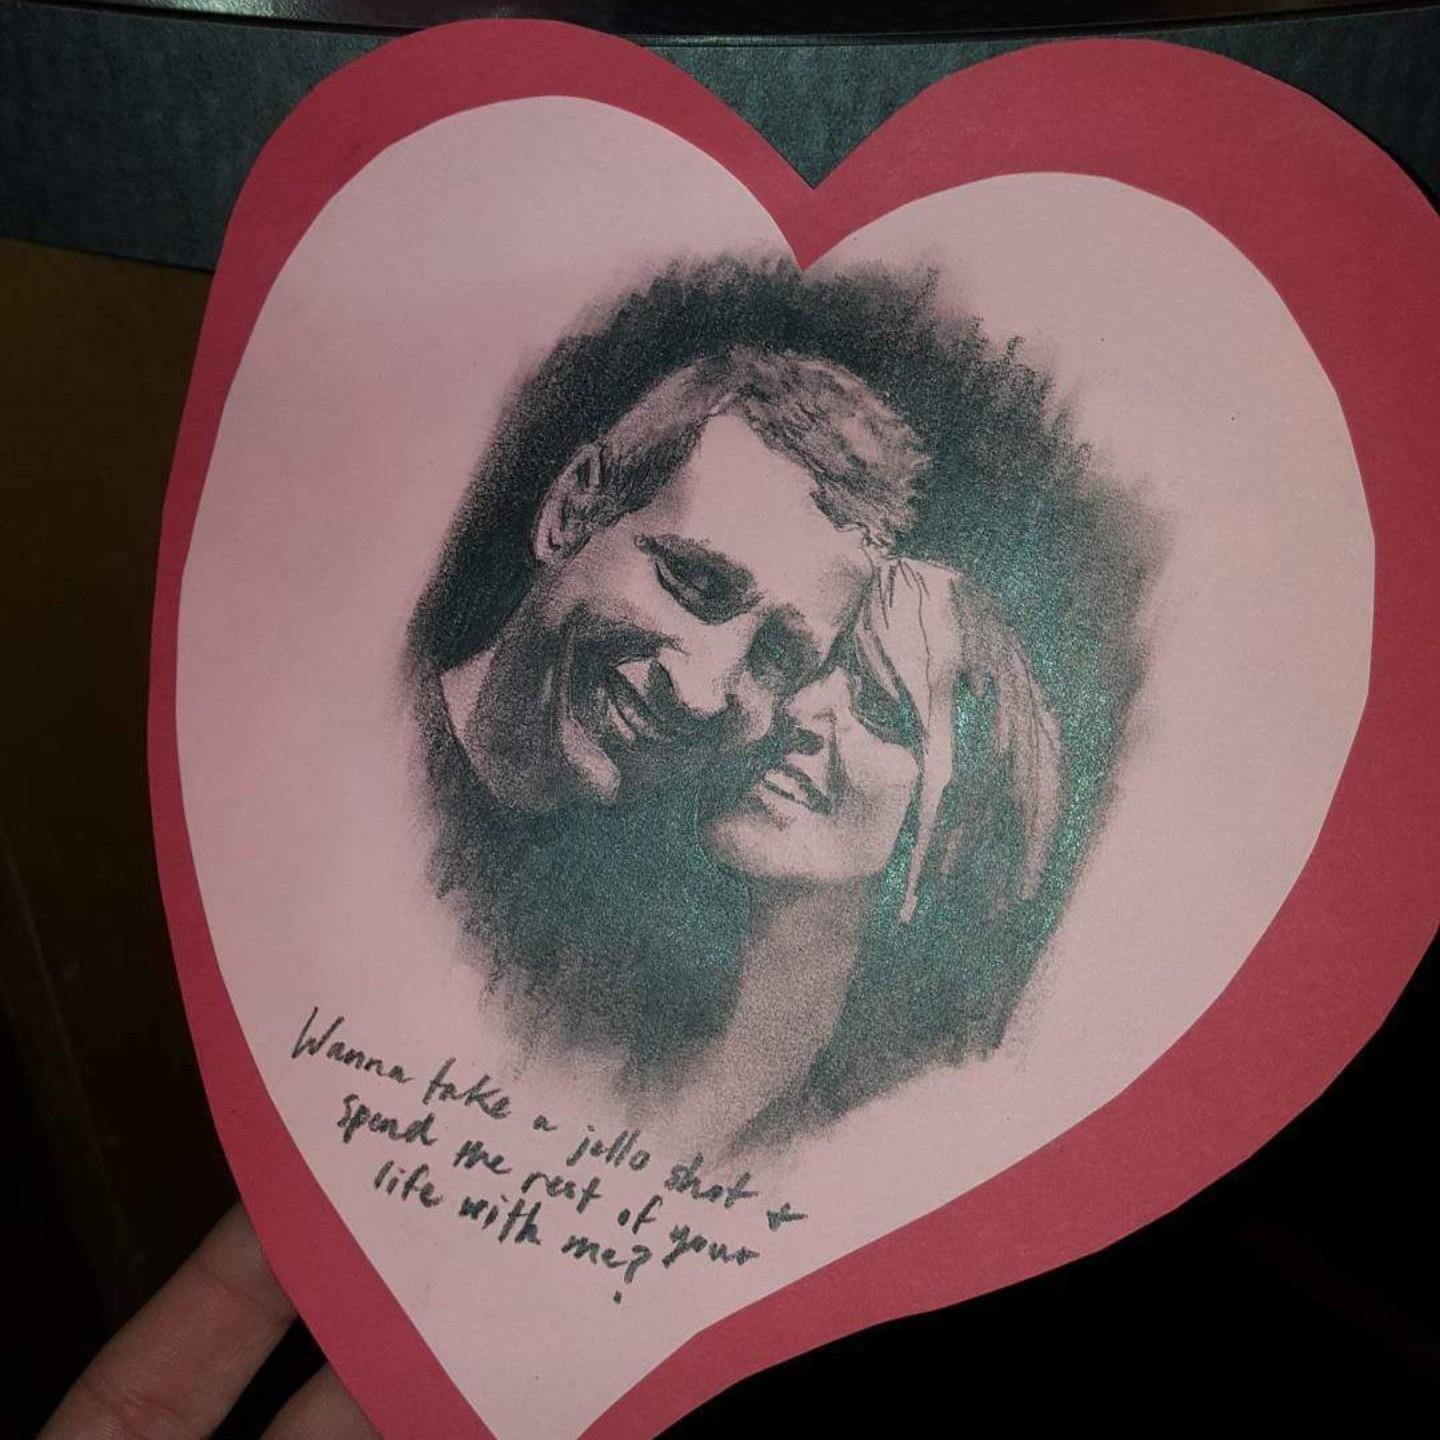 Wanna take a jello shot +
spend the rest of your
life with me?